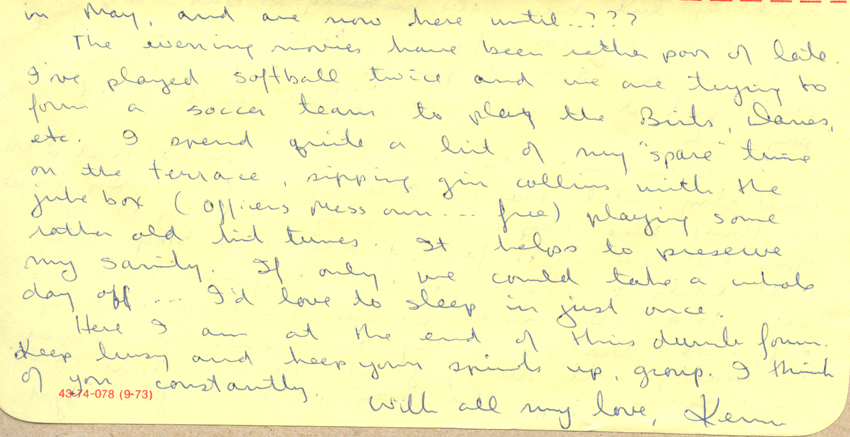 in May, and are now here until..???
The evening movies have been rather poor of late.
I've played softball twice and we are trying to
form a soccer team to play the Brits, Danes,
etc. I spend quite a bit of my "spare" time
on the terrace, sipping gin collins with the
juke box (Officers Mess own... free) playing some
rather old hit tunes. It helps to preserve
my sanity. If only we could take a whole
day off... I'd love to sleep in just once.
Here I am at the end of this dumb form.
Keep busy and keep your spirits up, group. I think
of you constantly.
43-74-078 (9-73)
With all my love,